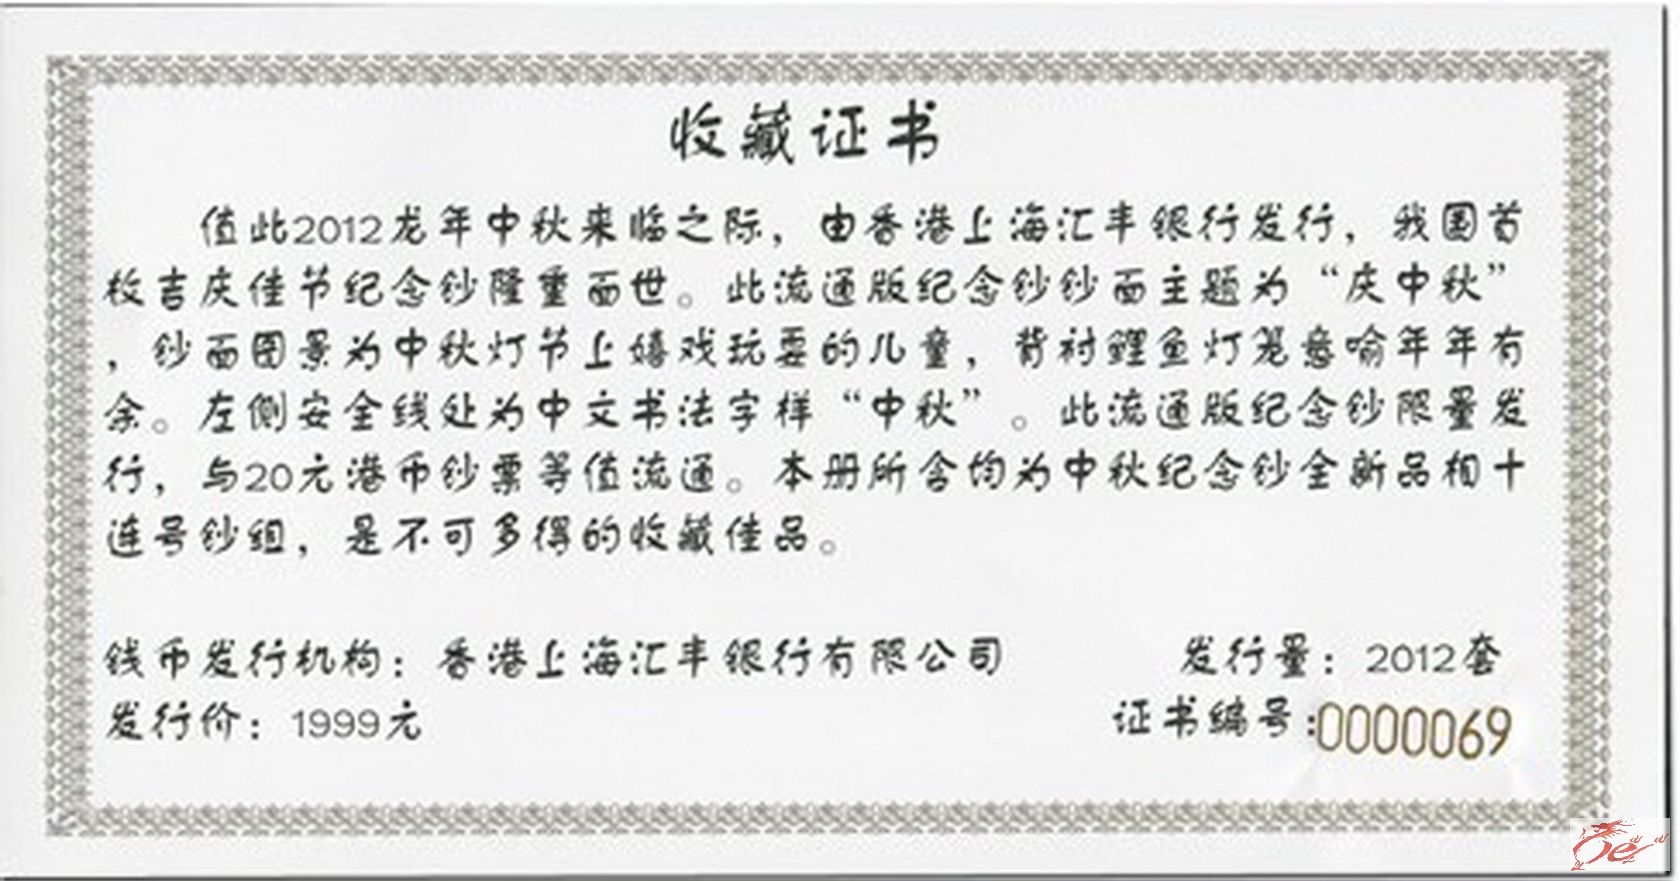 收藏证书
值此2012龙年中秋来临之际，由香港上海汇丰银行发行，我国首
枚吉庆佳节纪念钞隆重面世。此流通版纪念钞钞面主题为“庆中秋”
，钞面图景为中秋灯节上嬉戏玩耍的儿童，背衬鲤鱼灯笼意喻年年有
余。左侧安全线处为中文书法字样“中秋”。此流通版纪念钞限量发
行，与20元港币钞票等值流通。本册所含均为中秋纪念钞全新品相十
连号钞组，是不可多得的收藏佳品。
钱币发行机构：香港上海汇丰银行有限公司 发行量：2012套
发行价：1999元 证书编号:0000069